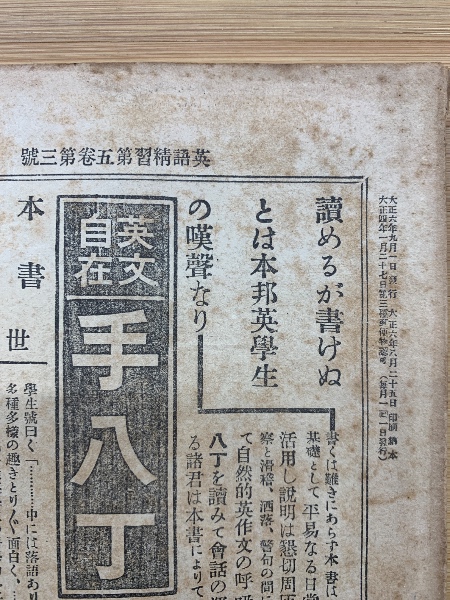 英語精習第五卷第三號
大正六年九月一日發行 大正六年八月二十五日印刷納本
大正四年一月二十七日第三種郵便物認可 (每月一回一日發行)
讀めるが書けぬ
とは本邦英學生
の嘆聲なり
書くは難きにあらず本書は
基礎として平易なる日常
活用し說明は懇切周
察と滑稽、洒落、警句の間に
て自然的英作文の呼
八丁を讀みて會話の
る諸君は本書によりて
英文
自在
手八丁
本書
世
學生號曰く「…………中には落語あり
多種多樣の趣きとりぐ\面白く、…